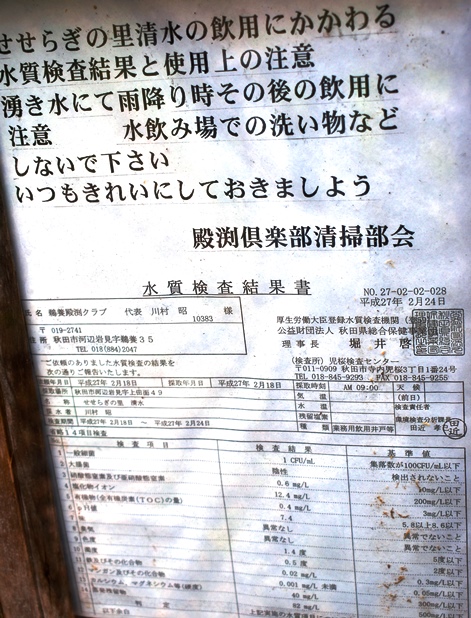 せせらぎの里清水の飲用にかかわる
水質検査結果と使用上の注意
湧き水にて雨降り時その後の飲用に
注意 水飲み場での洗い物など
しないで下さい
いつもきれいにしておきましょう
殿渕倶楽部清掃部会
水質検査結果書
NO.27-02-02-028
平成27年 2月24日
氏名 鵜養殿渕クラブ 代表 川村 昭 様
10383
〒 019-2741
住所 秋田市河辺岩見字鵜養35
TEL 018(884)2047
厚生労働大臣登録水質検査機関
公益財団法人 秋田県総合保健事業団
理事長 堀井 啓
(検査所) 児桜検査センター
〒011-0909 秋田市寺内児桜3丁目1番24号
TEL 018-845-9293 FAX 018-845-9255
ご依頼のありました水質検査の結果を
次の通りご報告いたします。
平成27年 2月18日 採取年月日 平成27年 2月18日 採取時刻 AM 09:00 天候
採取場所 秋田市河辺岩見字鵜養上倒49 気温 (前日)
せせらぎの里 清水 水温 検査責任者
採水者 川村 昭 残留塩素 環境検査分析課
検査期間 平成27年 2月18日 ～ 平成27年 2月24日 種類 業務用飲用井戸等 田近
14項目検査
検査項目 検査結果 基準値
一般細菌 1 CFU/mL 集落数が100CFU/mL以下
大腸菌 陰性 検出されないこと
硝酸態窒素及び亜硝酸態窒素 0.6 mg/L 10mg/L以下
塩化物イオン 12.4 mg/L 200mg/L以下
有機物(全有機炭素(TOC)の量) 0.4 mg/L 3mg/L以下
pH値 7.4 5.8以上8.6以下
味 異常なし 異常でないこと
臭気 異常なし 異常でないこと
色度 1.4 度 5度以下
濁度 0.5 度 2度以下
鉄及びその化合物 0.02 mg/L 0.3mg/L以下
0.001 mg/L 未満 0.05mg/L以下
カルシウム、マグネシウム等(硬度) 40 mg/L 300mg/L以下
蒸発残留物 82 mg/L 500mg/L以下
以下余白